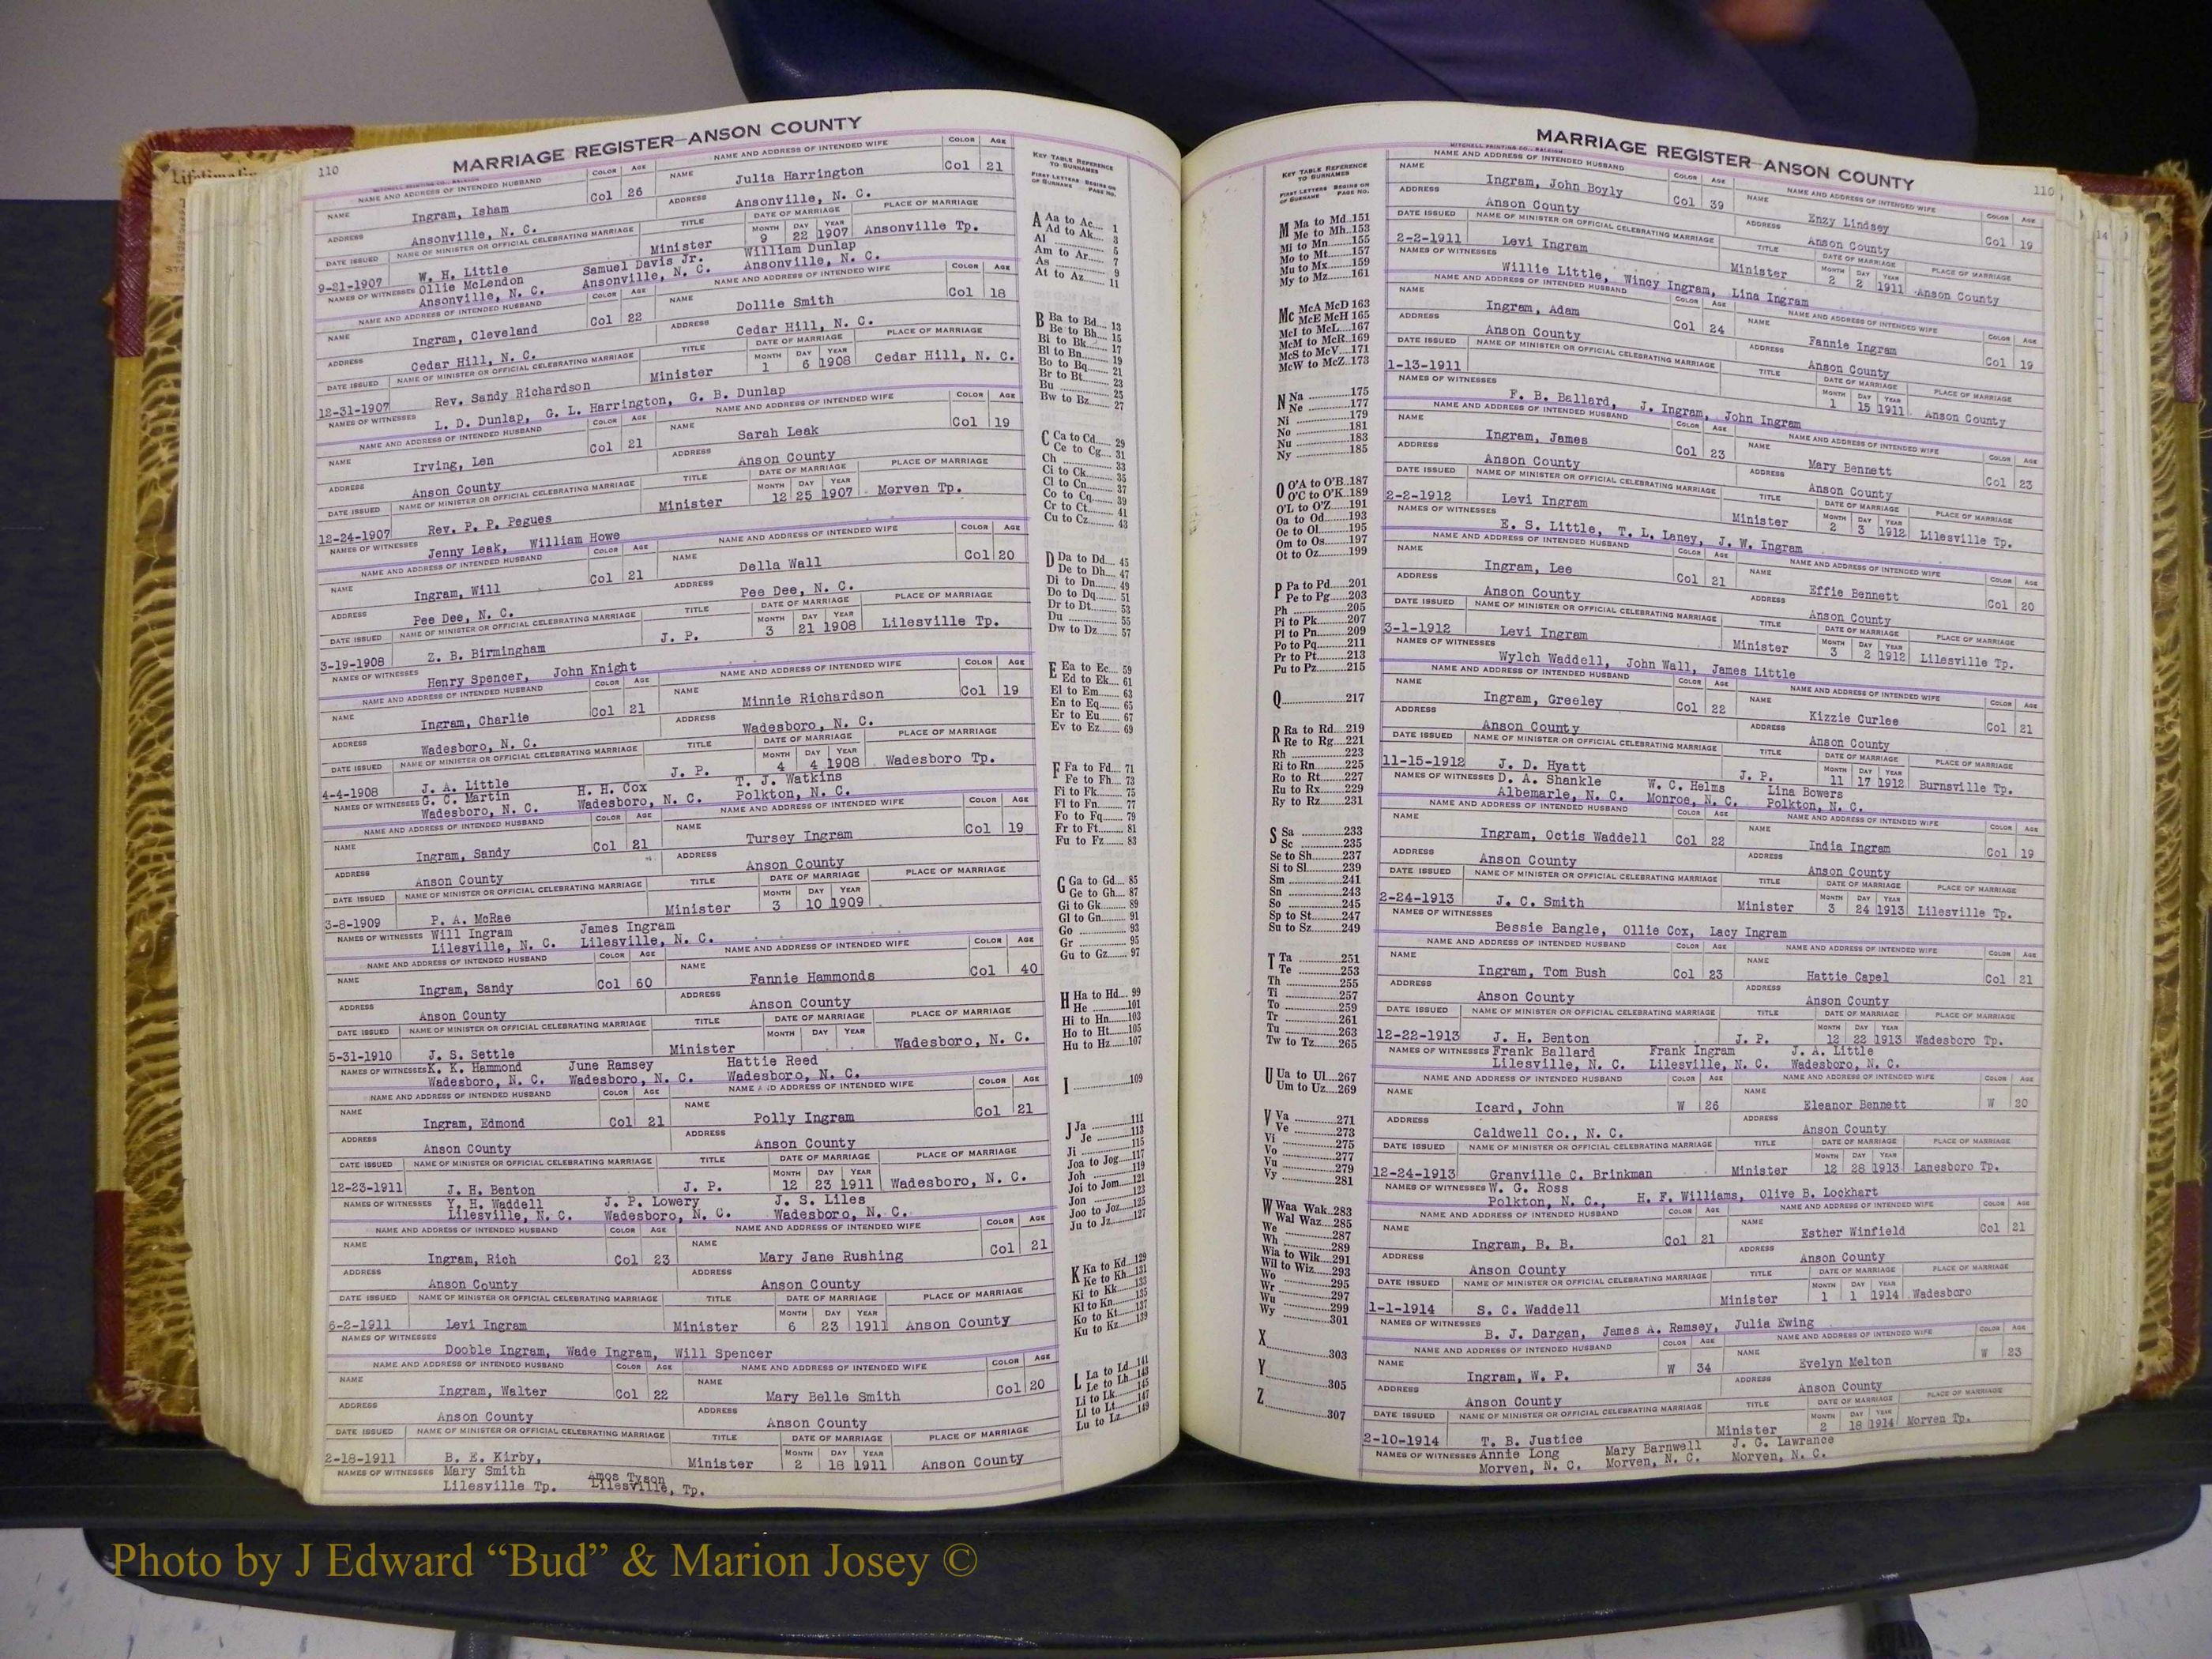 Lifetime
110
MARRIAGE REGISTER—ANSON COUNTY
MITCHELL PRINTING CO., RALEIGH
NAME AND ADDRESS OF INTENDED HUSBAND COLOR AGE NAME AND ADDRESS OF INTENDED WIFE COLOR AGE
NAME Ingram, Isham Col 26 NAME Julia Harrington Col 21
ADDRESS Ansonville, N. C. ADDRESS Ansonville, N. C.
DATE ISSUED NAME OF MINISTER OR OFFICIAL CELEBRATING MARRIAGE TITLE DATE OF MARRIAGE PLACE OF MARRIAGE
MONTH DAY YEAR
9-21-1907 W. H. Little Minister 9 22 1907 Ansonville Tp.
NAMES OF WITNESSES Ollie McLendon Samuel Davis Jr. William Dunlap
Ansonville, N. C. Ansonville, N. C. Ansonville, N. C.
NAME AND ADDRESS OF INTENDED HUSBAND COLOR AGE NAME AND ADDRESS OF INTENDED WIFE COLOR AGE
NAME Ingram, Cleveland Col 22 NAME Dollie Smith Col 18
ADDRESS Cedar Hill, N. C. ADDRESS Cedar Hill, N. C.
DATE ISSUED NAME OF MINISTER OR OFFICIAL CELEBRATING MARRIAGE TITLE DATE OF MARRIAGE PLACE OF MARRIAGE
MONTH DAY YEAR
12-31-1907 Rev. Sandy Richardson Minister 1 6 1908 Cedar Hill, N. C.
NAMES OF WITNESSES L. D. Dunlap, G. L. Harrington, G. B. Dunlap
NAME AND ADDRESS OF INTENDED HUSBAND COLOR AGE NAME AND ADDRESS OF INTENDED WIFE COLOR AGE
NAME Irving, Len Col 21 NAME Sarah Leak Col 19
ADDRESS Anson County ADDRESS Anson County
DATE ISSUED NAME OF MINISTER OR OFFICIAL CELEBRATING MARRIAGE TITLE DATE OF MARRIAGE PLACE OF MARRIAGE
MONTH DAY YEAR
12-24-1907 Rev. P. P. Pegues Minister 12 25 1907 Morven Tp.
NAMES OF WITNESSES Jenny Leak, William Howe
NAME AND ADDRESS OF INTENDED HUSBAND COLOR AGE NAME AND ADDRESS OF INTENDED WIFE COLOR AGE
NAME Ingram, Will Col 21 NAME Della Wall Col 20
ADDRESS Pee Dee, N. C. ADDRESS Pee Dee, N. C.
DATE ISSUED NAME OF MINISTER OR OFFICIAL CELEBRATING MARRIAGE TITLE DATE OF MARRIAGE PLACE OF MARRIAGE
MONTH DAY YEAR
3-19-1908 Z. B. Birmingham J. P. 3 21 1908 Lilesville Tp.
NAMES OF WITNESSES Henry Spencer, John Knight
NAME AND ADDRESS OF INTENDED HUSBAND COLOR AGE NAME AND ADDRESS OF INTENDED WIFE COLOR AGE
NAME Ingram, Charlie Col 21 NAME Minnie Richardson Col 19
ADDRESS Wadesboro, N. C. ADDRESS Wadesboro, N. C.
DATE ISSUED NAME OF MINISTER OR OFFICIAL CELEBRATING MARRIAGE TITLE DATE OF MARRIAGE PLACE OF MARRIAGE
MONTH DAY YEAR
4-4-1908 J. A. Little J. P. 4 4 1908 Wadesboro Tp.
NAMES OF WITNESSES G. C. Martin H. H. Cox T. J. Watkins
Wadesboro, N. C. Wadesboro, N. C. Polkton, N. C.
NAME AND ADDRESS OF INTENDED HUSBAND COLOR AGE NAME AND ADDRESS OF INTENDED WIFE COLOR AGE
NAME Ingram, Sandy Col 21 NAME Tursey Ingram Col 19
ADDRESS Anson County ADDRESS Anson County
DATE ISSUED NAME OF MINISTER OR OFFICIAL CELEBRATING MARRIAGE TITLE DATE OF MARRIAGE PLACE OF MARRIAGE
MONTH DAY YEAR
3-8-1909 P. A. McRae Minister 3 10 1909
NAMES OF WITNESSES Will Ingram James Ingram
Lilesville, N. C. Lilesville, N. C.
NAME AND ADDRESS OF INTENDED HUSBAND COLOR AGE NAME AND ADDRESS OF INTENDED WIFE COLOR AGE
NAME Ingram, Sandy Col 60 NAME Fannie Hammonds Col 40
ADDRESS Anson County ADDRESS Anson County
DATE ISSUED NAME OF MINISTER OR OFFICIAL CELEBRATING MARRIAGE TITLE DATE OF MARRIAGE PLACE OF MARRIAGE
MONTH DAY YEAR
5-31-1910 J. S. Settle Minister Wadesboro, N. C.
NAMES OF WITNESSES K. K. Hammond June Ramsey Hattie Reed
Wadesboro, N. C. Wadesboro, N. C. Wadesboro, N. C.
NAME AND ADDRESS OF INTENDED HUSBAND COLOR AGE NAME AND ADDRESS OF INTENDED WIFE COLOR AGE
NAME Ingram, Edmond Col 21 NAME Polly Ingram Col 21
ADDRESS Anson County ADDRESS Anson County
DATE ISSUED NAME OF MINISTER OR OFFICIAL CELEBRATING MARRIAGE TITLE DATE OF MARRIAGE PLACE OF MARRIAGE
MONTH DAY YEAR
12-23-1911 J. H. Benton J. P. 12 23 1911 Wadesboro, N. C.
NAMES OF WITNESSES Y. H. Waddell J. P. Lowery J. S. Liles
Lilesville, N. C. Wadesboro, N. C. Wadesboro, N. C.
NAME AND ADDRESS OF INTENDED HUSBAND COLOR AGE NAME AND ADDRESS OF INTENDED WIFE COLOR AGE
NAME Ingram, Rich Col 23 NAME Mary Jane Rushing Col 21
ADDRESS Anson County ADDRESS Anson County
DATE ISSUED NAME OF MINISTER OR OFFICIAL CELEBRATING MARRIAGE TITLE DATE OF MARRIAGE PLACE OF MARRIAGE
MONTH DAY YEAR
6-2-1911 Levi Ingram Minister 6 23 1911 Anson County
NAMES OF WITNESSES
Dooble Ingram, Wade Ingram, Will Spencer
NAME AND ADDRESS OF INTENDED HUSBAND COLOR AGE NAME AND ADDRESS OF INTENDED WIFE COLOR AGE
NAME Ingram, Walter Col 22 NAME Mary Belle Smith Col 20
ADDRESS Anson County ADDRESS Anson County
DATE ISSUED NAME OF MINISTER OR OFFICIAL CELEBRATING MARRIAGE TITLE DATE OF MARRIAGE PLACE OF MARRIAGE
MONTH DAY YEAR
2-18-1911 B. E. Kirby, Minister 2 18 1911 Anson County
NAMES OF WITNESSES Mary Smith Amos Tyson
Lilesville Tp. Lilesville, Tp.
KEY TABLE REFERENCE
TO SURNAMES
FIRST LETTERS BEGINS ON
OF SURNAME PAGE NO.
A Aa to Ac.... 1
Ad to Ak.... 3
Al .... 5
Am to Ar.... 7
As .... 9
At to Az.... 11
B Ba to Bd.... 13
Be to Bh.... 15
Bi to Bk.... 17
Bl to Bn.... 19
Bo to Bq.... 21
Br to Bt.... 23
Bu .... 25
Bw to Bz.... 27
C Ca to Cd.... 29
Ce to Cg.... 31
Ch .... 33
Ci to Ck.... 35
Cl to Cn.... 37
Co to Cq.... 39
Cr to Ct.... 41
Cu to Cz.... 43
D Da to Dd.... 45
De to Dh.... 47
Di to Dn.... 49
Do to Dq.... 51
Dr to Dt.... 53
Du .... 55
Dw to Dz.... 57
E Ea to Ec.... 59
Ed to Ek.... 61
El to Em.... 63
En to Eq.... 65
Er to Eu.... 67
Ev to Ez.... 69
F Fa to Fd.... 71
Fe to Fh.... 73
Fi to Fk.... 75
Fl to Fn.... 77
Fo to Fq.... 79
Fr to Ft.... 81
Fu to Fz.... 83
G Ga to Gd.... 85
Ge to Gh.... 87
Gi to Gk.... 89
Gl to Gn.... 91
Go .... 93
Gr .... 95
Gu to Gz.... 97
H Ha to Hd.... 99
He ....101
Hi to Hn....103
Ho to Ht....105
Hu to Hz....107
I ....109
J Ja ....111
Je ....113
Ji ....115
Joa to Jog....117
Joh ....119
Joi to Jom....121
Jon ....123
Joo to Joz....125
Ju to Jz....127
K Ka to Kd....129
Ke to Kh....131
Ki to Kk....133
Kl to Kn....135
Ko to Kt....137
Ku to Kz....139
L La to Ld....141
Le to Lh....143
Li to Lk....145
Ll to Lt....147
Lu to Lz....149
MARRIAGE REGISTER—ANSON COUNTY
110
MITCHELL PRINTING CO., RALEIGH
KEY TABLE REFERENCE
TO SURNAMES
FIRST LETTERS BEGINS ON
OF SURNAME PAGE NO.
M Ma to Md..151
Me to Mh..153
Mi to Mn....155
Mo to Mt....157
Mu to Mx....159
My to Mz....161
Mc McA McD 163
McE McH 165
McI to McL....167
McM to McR..169
McS to McV....171
McW to McZ..173
N Na ....175
Ne ....177
Ni ....179
No ....181
Nu ....183
Ny ....185
O O'A to O'B..187
O'C to O'K..189
O'L to O'Z....191
Oa to Od....193
Oe to Ol....195
Om to Os....197
Ot to Oz....199
P Pa to Pd....201
Pe to Pg....203
Ph ....205
Pi to Pk....207
Pl to Pn....209
Po to Pq....211
Pr to Pt....213
Pu to Pz....215
Q....217
R Ra to Rd....219
Re to Rg....221
Rh ....223
Ri to Rn....225
Ro to Rt....227
Ru to Rx....229
Ry to Rz....231
S Sa ....233
Sc ....235
Se to Sh....237
Si to Sl....239
Sm ....241
Sn ....243
So ....245
Sp to St....247
Su to Sz....249
T Ta ....251
Te ....253
Th ....255
Ti ....257
To ....259
Tr ....261
Tu ....263
Tw to Tz....265
U Ua to Ul....267
Um to Uz....269
V Va ....271
Ve ....273
Vi ....275
Vo ....277
Vu ....279
Vy ....281
W Waa Wak..283
Wal Waz....285
We ....287
Wh ....289
Wia to Wik....291
Wil to Wiz....293
Wo ....295
Wr ....297
Wu ....299
Wy ....301
X ....303
Y ....305
Z ....307
NAME AND ADDRESS OF INTENDED HUSBAND COLOR AGE NAME AND ADDRESS OF INTENDED WIFE COLOR AGE
NAME Ingram, John Boyly Col 39 NAME Enzy Lindsey Col 19
ADDRESS Anson County ADDRESS Anson County
DATE ISSUED NAME OF MINISTER OR OFFICIAL CELEBRATING MARRIAGE TITLE DATE OF MARRIAGE PLACE OF MARRIAGE
MONTH DAY YEAR
2-2-1911 Levi Ingram Minister 2 2 1911 Anson County
NAMES OF WITNESSES Willie Little, Wincy Ingram, Lina Ingram
NAME AND ADDRESS OF INTENDED HUSBAND COLOR AGE NAME AND ADDRESS OF INTENDED WIFE COLOR AGE
NAME Ingram, Adam Col 24 NAME Fannie Ingram Col 19
ADDRESS Anson County ADDRESS Anson County
DATE ISSUED NAME OF MINISTER OR OFFICIAL CELEBRATING MARRIAGE TITLE DATE OF MARRIAGE PLACE OF MARRIAGE
MONTH DAY YEAR
1-13-1911 1 15 1911 Anson County
NAMES OF WITNESSES F. B. Ballard, J. Ingram, John Ingram
NAME AND ADDRESS OF INTENDED HUSBAND COLOR AGE NAME AND ADDRESS OF INTENDED WIFE COLOR AGE
NAME Ingram, James Col 23 NAME Mary Bennett Col 23
ADDRESS Anson County ADDRESS Anson County
DATE ISSUED NAME OF MINISTER OR OFFICIAL CELEBRATING MARRIAGE TITLE DATE OF MARRIAGE PLACE OF MARRIAGE
MONTH DAY YEAR
2-2-1912 Levi Ingram Minister 2 3 1912 Lilesville Tp.
NAMES OF WITNESSES E. S. Little, T. L. Laney, J. W. Ingram
NAME AND ADDRESS OF INTENDED HUSBAND COLOR AGE NAME AND ADDRESS OF INTENDED WIFE COLOR AGE
NAME Ingram, Lee Col 21 NAME Effie Bennett Col 20
ADDRESS Anson County ADDRESS Anson County
DATE ISSUED NAME OF MINISTER OR OFFICIAL CELEBRATING MARRIAGE TITLE DATE OF MARRIAGE PLACE OF MARRIAGE
MONTH DAY YEAR
3-1-1912 Levi Ingram Minister 3 2 1912 Lilesville Tp.
NAMES OF WITNESSES Wylch Waddell, John Wall, James Little
NAME AND ADDRESS OF INTENDED HUSBAND COLOR AGE NAME AND ADDRESS OF INTENDED WIFE COLOR AGE
NAME Ingram, Greeley Col 22 NAME Kizzie Curlee Col 21
ADDRESS Anson County ADDRESS Anson County
DATE ISSUED NAME OF MINISTER OR OFFICIAL CELEBRATING MARRIAGE TITLE DATE OF MARRIAGE PLACE OF MARRIAGE
MONTH DAY YEAR
11-15-1912 J. D. Hyatt J. P. 11 17 1912 Burnsville Tp.
NAMES OF WITNESSES D. A. Shankle W. C. Helms Lina Bowers
Albemarle, N. C. Monroe, N. C. Polkton, N. C.
NAME AND ADDRESS OF INTENDED HUSBAND COLOR AGE NAME AND ADDRESS OF INTENDED WIFE COLOR AGE
NAME Ingram, Octis Waddell Col 22 NAME India Ingram Col 19
ADDRESS Anson County ADDRESS Anson County
DATE ISSUED NAME OF MINISTER OR OFFICIAL CELEBRATING MARRIAGE TITLE DATE OF MARRIAGE PLACE OF MARRIAGE
MONTH DAY YEAR
2-24-1913 J. C. Smith Minister 3 24 1913 Lilesville Tp.
NAMES OF WITNESSES Bessie Bangle, Ollie Cox, Lacy Ingram
NAME AND ADDRESS OF INTENDED HUSBAND COLOR AGE NAME AND ADDRESS OF INTENDED WIFE COLOR AGE
NAME Ingram, Tom Bush Col 23 NAME Hattie Capel Col 21
ADDRESS Anson County ADDRESS Anson County
DATE ISSUED NAME OF MINISTER OR OFFICIAL CELEBRATING MARRIAGE TITLE DATE OF MARRIAGE PLACE OF MARRIAGE
MONTH DAY YEAR
12-22-1913 J. H. Benton J. P. 12 22 1913 Wadesboro Tp.
NAMES OF WITNESSES Frank Ballard Frank Ingram J. A. Little
Lilesville, N. C. Lilesville, N. C. Wadesboro, N. C.
NAME AND ADDRESS OF INTENDED HUSBAND COLOR AGE NAME AND ADDRESS OF INTENDED WIFE COLOR AGE
NAME Icard, John W 26 NAME Eleanor Bennett W 20
ADDRESS Caldwell Co., N. C. ADDRESS Anson County
DATE ISSUED NAME OF MINISTER OR OFFICIAL CELEBRATING MARRIAGE TITLE DATE OF MARRIAGE PLACE OF MARRIAGE
MONTH DAY YEAR
12-24-1913 Granville C. Brinkman Minister 12 28 1913 Lanesboro Tp.
NAMES OF WITNESSES W. G. Ross
Polkton, N. C., H. F. Williams, Olive B. Lockhart
NAME AND ADDRESS OF INTENDED HUSBAND COLOR AGE NAME AND ADDRESS OF INTENDED WIFE COLOR AGE
NAME Ingram, B. B. Col 21 NAME Esther Winfield Col 21
ADDRESS Anson County ADDRESS Anson County
DATE ISSUED NAME OF MINISTER OR OFFICIAL CELEBRATING MARRIAGE TITLE DATE OF MARRIAGE PLACE OF MARRIAGE
MONTH DAY YEAR
1-1-1914 S. C. Waddell Minister 1 1 1914 Wadesboro
NAMES OF WITNESSES B. J. Dargan, James A. Ramsey, Julia Ewing
NAME AND ADDRESS OF INTENDED HUSBAND COLOR AGE NAME AND ADDRESS OF INTENDED WIFE COLOR AGE
NAME Ingram, W. P. W 34 NAME Evelyn Melton W 23
ADDRESS Anson County ADDRESS Anson County
DATE ISSUED NAME OF MINISTER OR OFFICIAL CELEBRATING MARRIAGE TITLE DATE OF MARRIAGE PLACE OF MARRIAGE
MONTH DAY YEAR
2-10-1914 T. B. Justice Minister 2 18 1914 Morven Tp.
NAMES OF WITNESSES Annie Long Mary Barnwell J. G. Lawrance
Morven, N. C. Morven, N. C. Morven, N. C.
14
Photo by J Edward “Bud” & Marion Josey ©